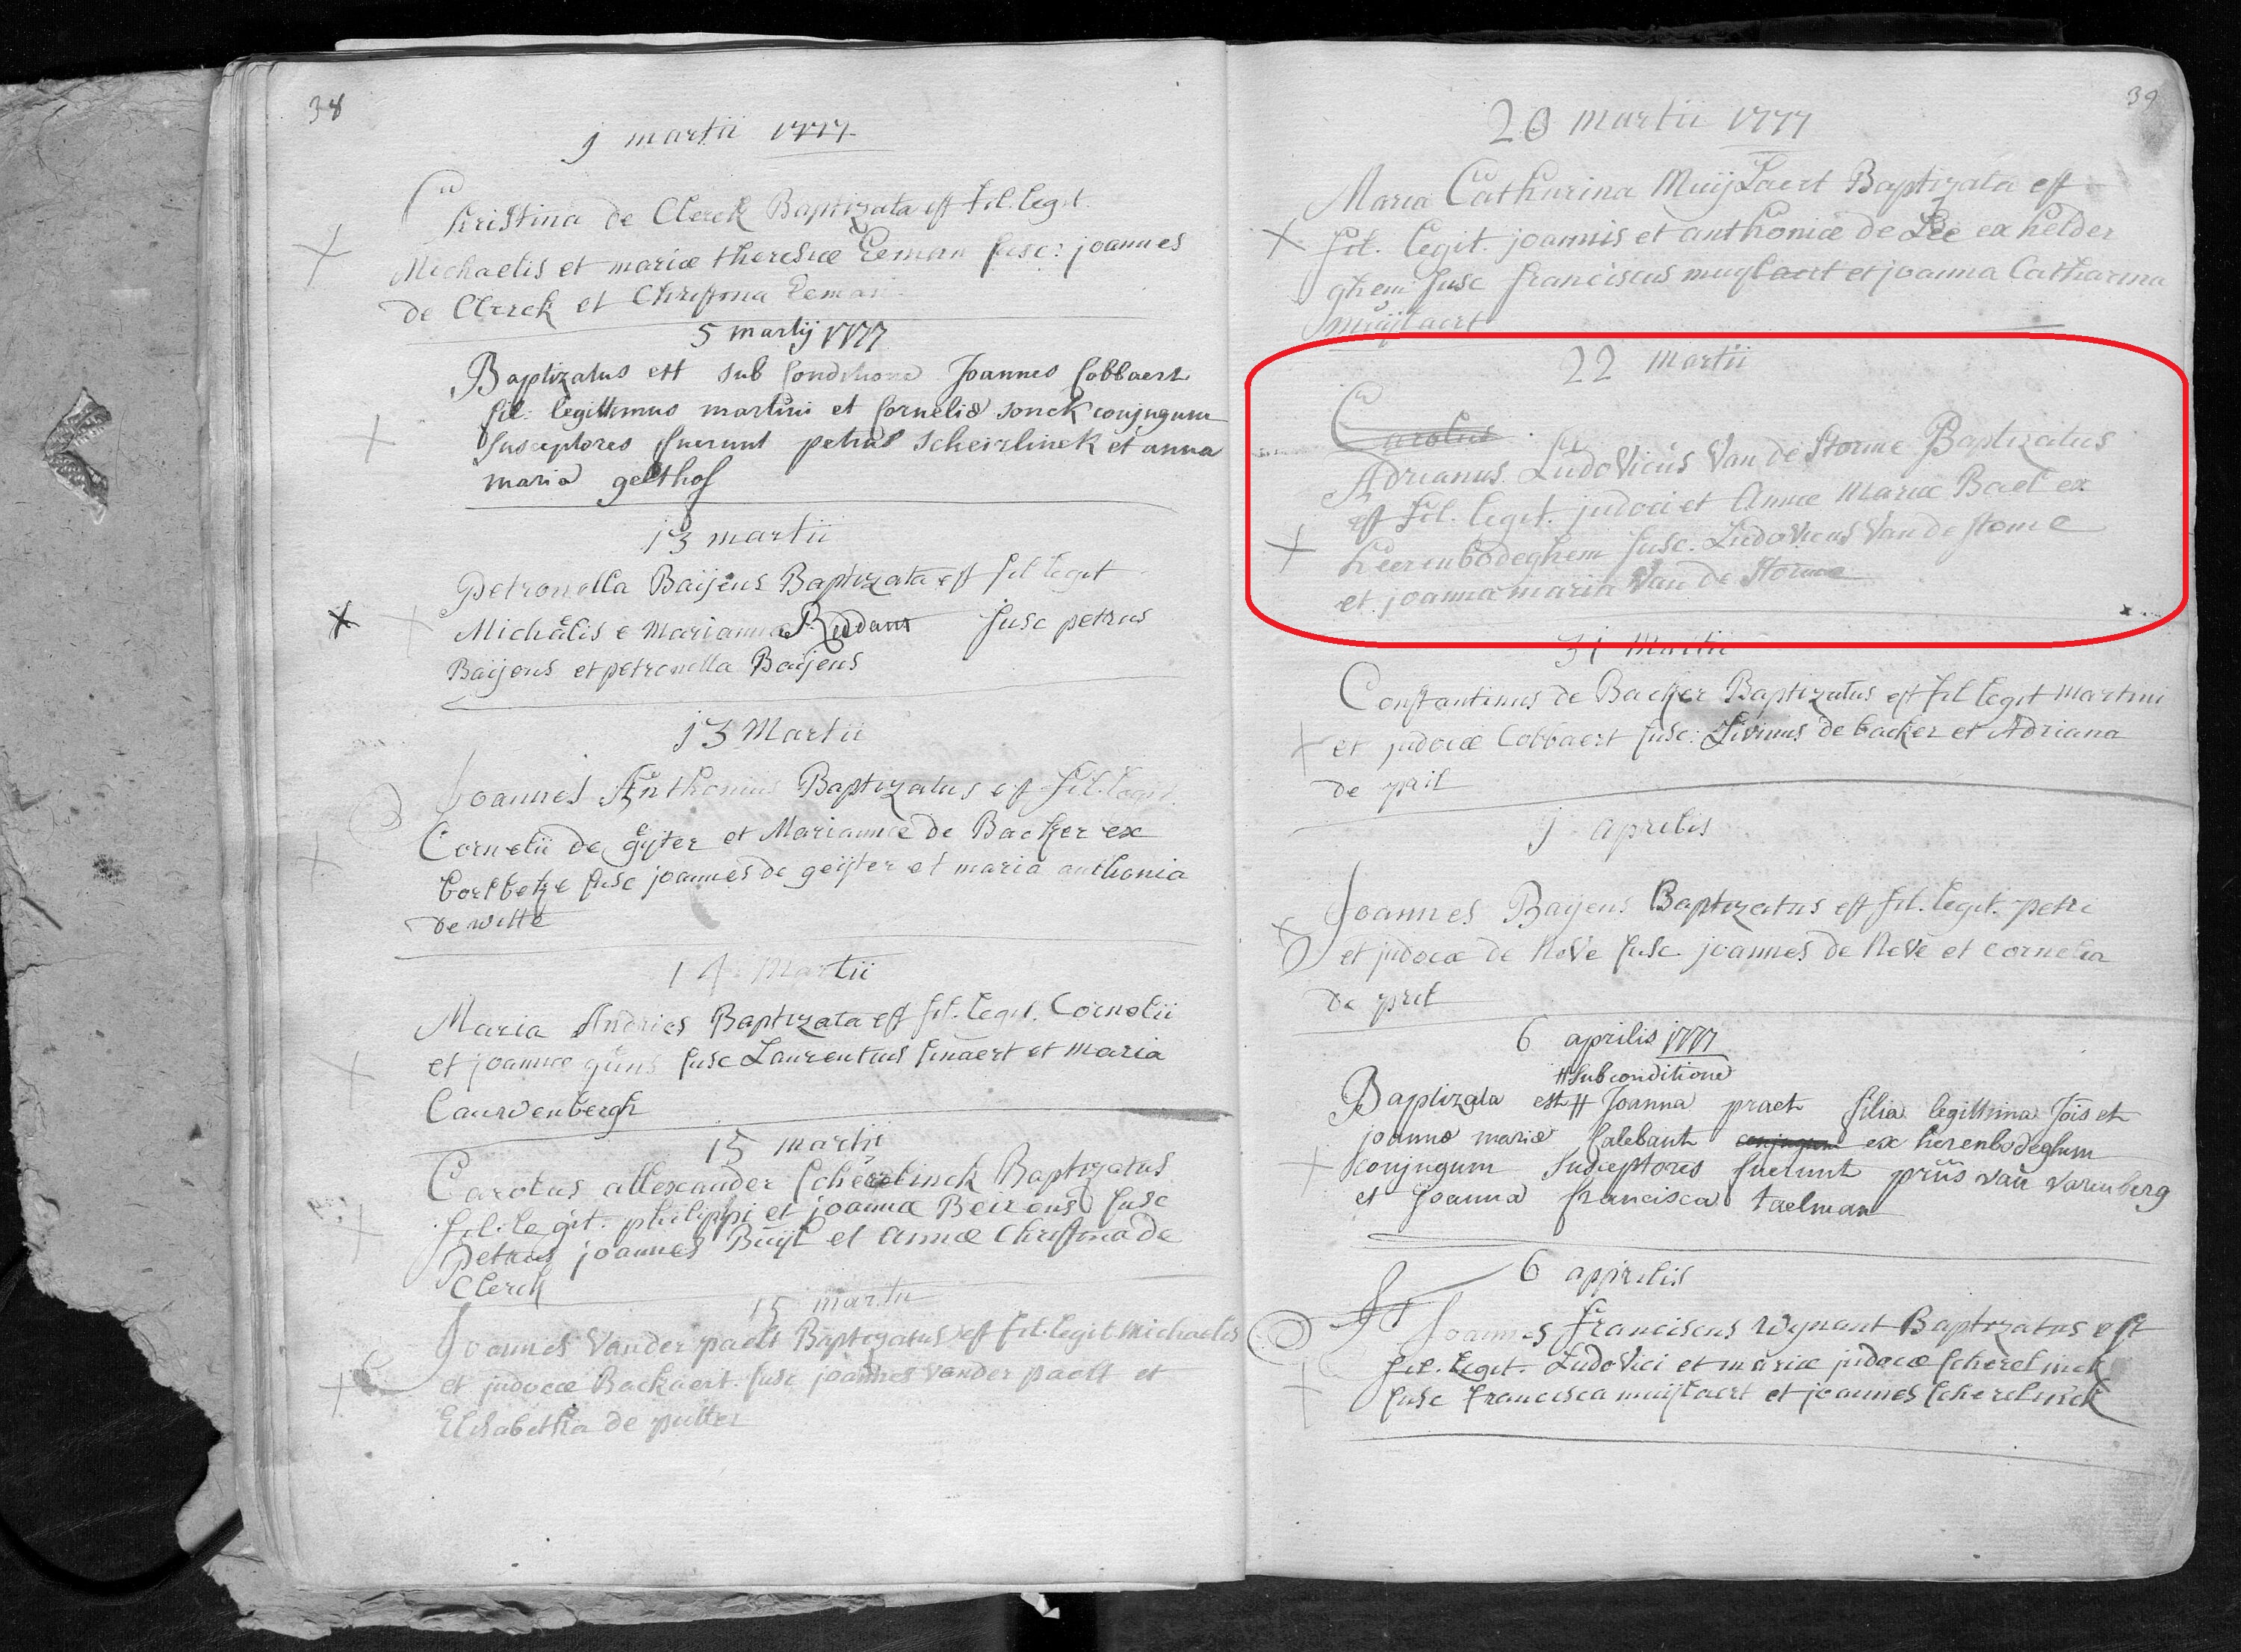 38
1 martii 1777
Christina de Clerck Baptizata est fil. legit.
Michaelis et mariæ theresiæ Eeman susc: joannes
de Clerck et Christina Eeman
5 martij 1777
Baptizatus est sub conditione Joannes Cobbaert
fil. legittimus martini et Corneliæ sonck conjugum
susceptores fuerunt petrus scheirlinck et anna
maria gelthof
13 martii
Petronella Baijens Baptizata est fil legit
Michaëlis e Mariannæ Riddant susc petrus
Baijens et petronella Baijens
13 Martii
Joannes Anthonius Baptizatus est fil. legit.
Cornelii de geyter et Mariannæ de Backer ex
borsbeke susc joannes de geijter et maria anthonia
de witte
14 Martii
Maria Andries Baptizata est fil. legit. Cornelii
et joannæ guns susc Laurentius
et maria
Cauwenbergh
15 martii
Carolus allexander Scherelinck Baptizatus
fil. legit. philippi et joannæ Beirens susc
petrus joannes Buijl et Annæ Christina de
Clerck
15 martii
Joannes Vander paelt Baptizatus est fil. legit. Michaelis
et judocæ Backaert. susc joannes vander paelt et
Elisabetha de putter
39
20 martii 1777
Maria Catharina Muijlaert Baptizata est
fil. legit. joannis et anthoniæ de Leê ex helder
ghem susc franciscus muylaert et joanna Catharina
muijlaert
22 Martii
Carolus
Adrianus Ludovicus Van de Storme Baptizatus
est fil. legit. judoci et Annæ Mariæ Bael ex
heerenbodeghem susc. Ludovicus Van de storme
et joanna maria Van de Storme
31 Martii
Constantinus de Backer Baptizatus est fil legit Martini
et judocæ Cobbaert susc: Livinus de backer et Adriana
de pril
1 aprilis
Joannes Baijens Baptizatus est fil. legit. petri
et judocæ de Neve susc joannes de Neve et cornelia
de pril
6 aprilis 1777
# sub conditione
Baptizata est # Joanna praet filia legittima Jois et
joannæ mariæ Calebaut conjugum ex herenbodeghem
conjugum susceptores fuerunt prüs van varenberg
et Joanna francisca taelman
6 aprilis
Joannes franciscus Wynant Baptizatus est
fil. legit. Ludovici et mariæ judocæ scherelinck
susc francisca muijlaert et joannes scherelinck